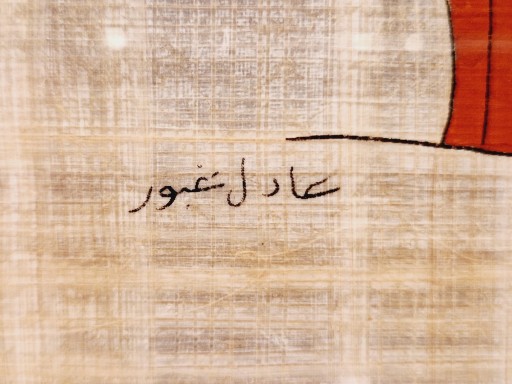 عادل غبور